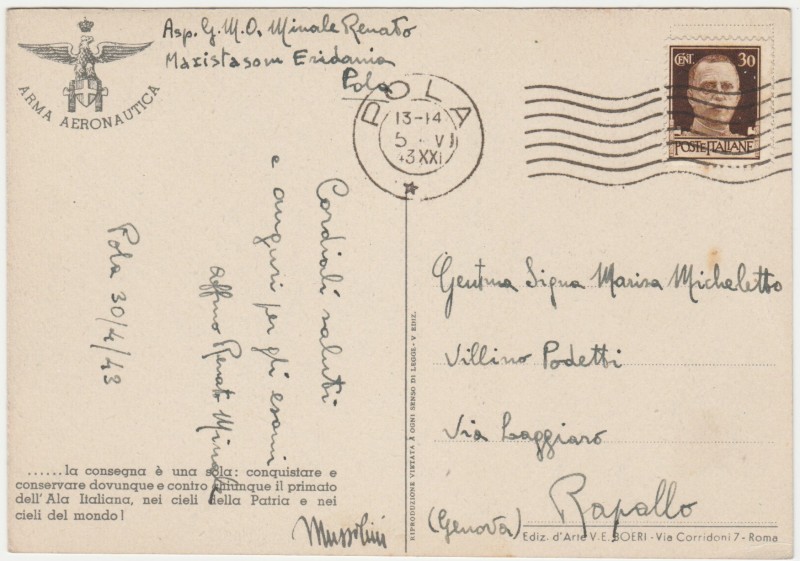 ARMA AERONAUTICA
Asp. G.M.O. Minale Renato
Maristasom Eridania
Pola
POLA
13-14
5 VI
43XXI
CENT. 30
POSTE ITALIANE
Cordiali saluti
e auguri per gli esami
affmo Renato Minale
Pola 30/4/43
......la consegna è una sola: conquistare e
conservare dovunque e contro chiunque il primato
dell'Ala Italiana, nei cieli della Patria e nei
cieli del mondo!
Mussolini
RIPRODUZIONE VIETATA A OGNI SENSO DI LEGGE - V EDIZ.
Gentma Signa Marisa Micheletto
Villino Podetti
Via Laggiaro
Rapallo
(Genova)
Ediz. d'Arte V.E. BOERI - Via Corridoni 7 - Roma